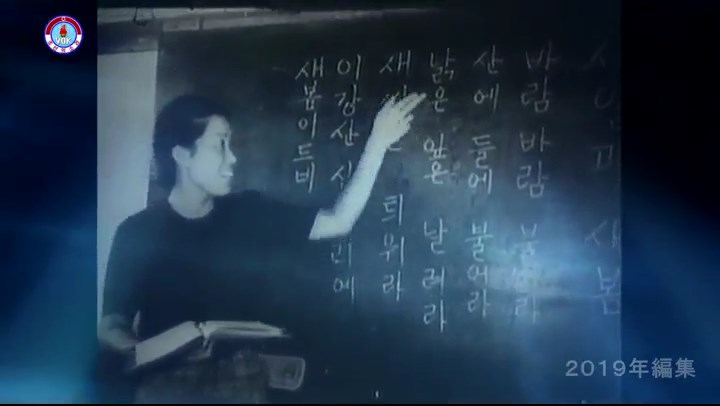 VOK
새봄
바람 바람 불어라
산에 들에 불어라
낡은 잎은 날려라
틔워라
이강산
새봄이드비
2019年編集